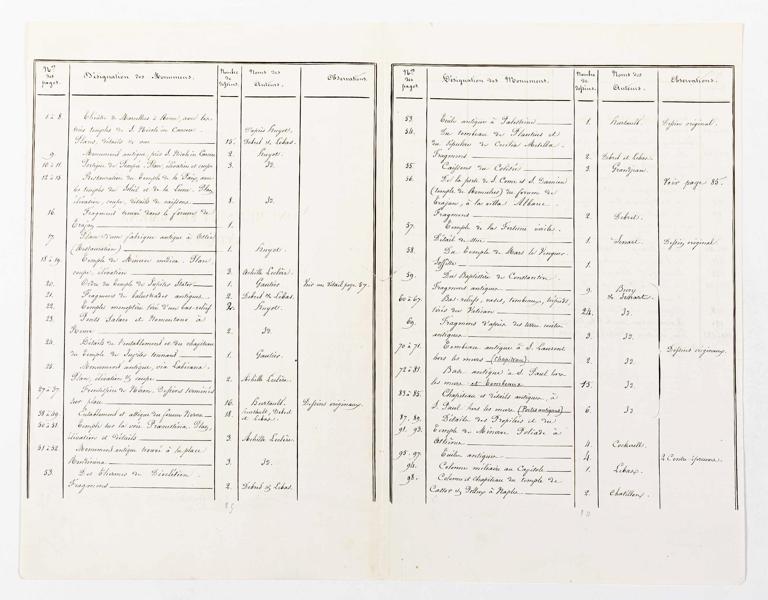 Nos des pages. Désignation des Monumens. Nombre de dessins. Noms des Auteurs. Observations.
1 à 8. Théâtre de Marcellus à Rome, avec les
trois temples de S. Nicola in Carcere D'après Huyot.
Plans, détails de 15. Debret et Lebas.
9. Monument antique, près S. Nicola in Carcere 2. Huyot.
10 à 11. Portique de Pompée. Plan, élévation et coupe 3. Id.
12 à 15. Restauration du Temple de la Paix, avec
les temples du Soleil et de la Lune. Plan,
élévation, coupe, détails de caissons. 8. Id.
16. Fragment trouvé dans le forum de
Trajan 1.
17. Plan d'une fabrique antique à Ostie
(Restauration) 1. Huyot.
18 à 19. Temple de Minerve medica. Plan,
coupe, élévation 3. Achille Leclère.
20. Ordre du temple de Jupiter Stator 1. Gautier Voir un détail page 87.
21. Fragment de balustrades antiques. 2. Debret & Lebas.
22. Temple monoptère tiré d'un bas-relief 2. Huyot.
23. Ponts Salaro et Nomentano à
Rome 2. Id.
24. Détails de l'entablement et du chapiteau
du temple de Jupiter tonnant 1. Gautier.
25. Monument antique, via Labicana.
Plan, élévation & coupe 2. Achille Leclère.
27 à 37. Frontispice de Néron. Dessins terminés
sur place 16. Huyot. Dessins originaux.
38 à 49. Entablement et attique du forum Nerva 18. Debret et Lebas.
50 à 51. Temple sur la voie Prénestine. Plan,
élévation et détails 3. Achille Leclère.
51 à 52. Monument antique trouvé à la place
3. Id.
53. Des Thermes de Dioclétien.
Fragment 2. Debret & Lebas.
85
Nos des pages. Désignation des Monumens. Nombre de dessins. Noms des Auteurs. Observations.
53. Etude antique à Palestrine 1. Dessin original.
54. Du tombeau de Plautius et
du sépulcre de Cecilia Metella.
Fragment 2. Debret et Lebas.
55. Caissons du Colisée 3. Grandjean.
56. De la porte de S. Come et S. Damien Voir page 85.
(temple de Romulus) du forum de
Trajan, à la villa Albane
Fragment 2. Debret.
57. Temple de la Fortune virile.
Détail de 1. Dessin original.
58. Du Temple de Mars le Vengeur.
Soffite 1.
59. Du Baptistère de Constantin.
Fragment antique 9. Bury & Sénart.
60 à 67. Bas-reliefs, vases, tombeaux, trépieds,
tirés du Vatican 24. Id.
69. Fragment d'après des
antiques 3. Id.
Dessins originaux.
70 à 71. Tombeau antique à S. Laurent
hors les murs (Chapiteau) 2. Id.
72 à 81. Base antique à S. Paul hors
les murs et Tombeaux 15. Id.
83 à 85. Chapiteau et détails antiques, à
S. Paul hors les murs 6. Id.
87, 89. Détails des Propylées et du
91, 93. Temple de Minerve Poliade à
Athènes 4. Cockerell.
95, 97. Etudes antiques 4. 2 Contre épreuves.
94. Colonne militaire au Capitole 1. Lebas.
98. Colonne et chapiteau du temple de
Castor & Pollux à Naples 2. Chatillon.